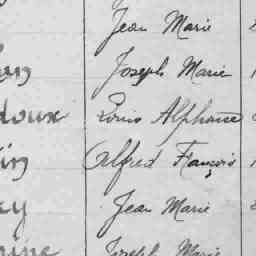 Jean Marie
Joseph Marie
doux Louis Alphonse
in Alfred François
ey Jean Marie
Joseph Marie